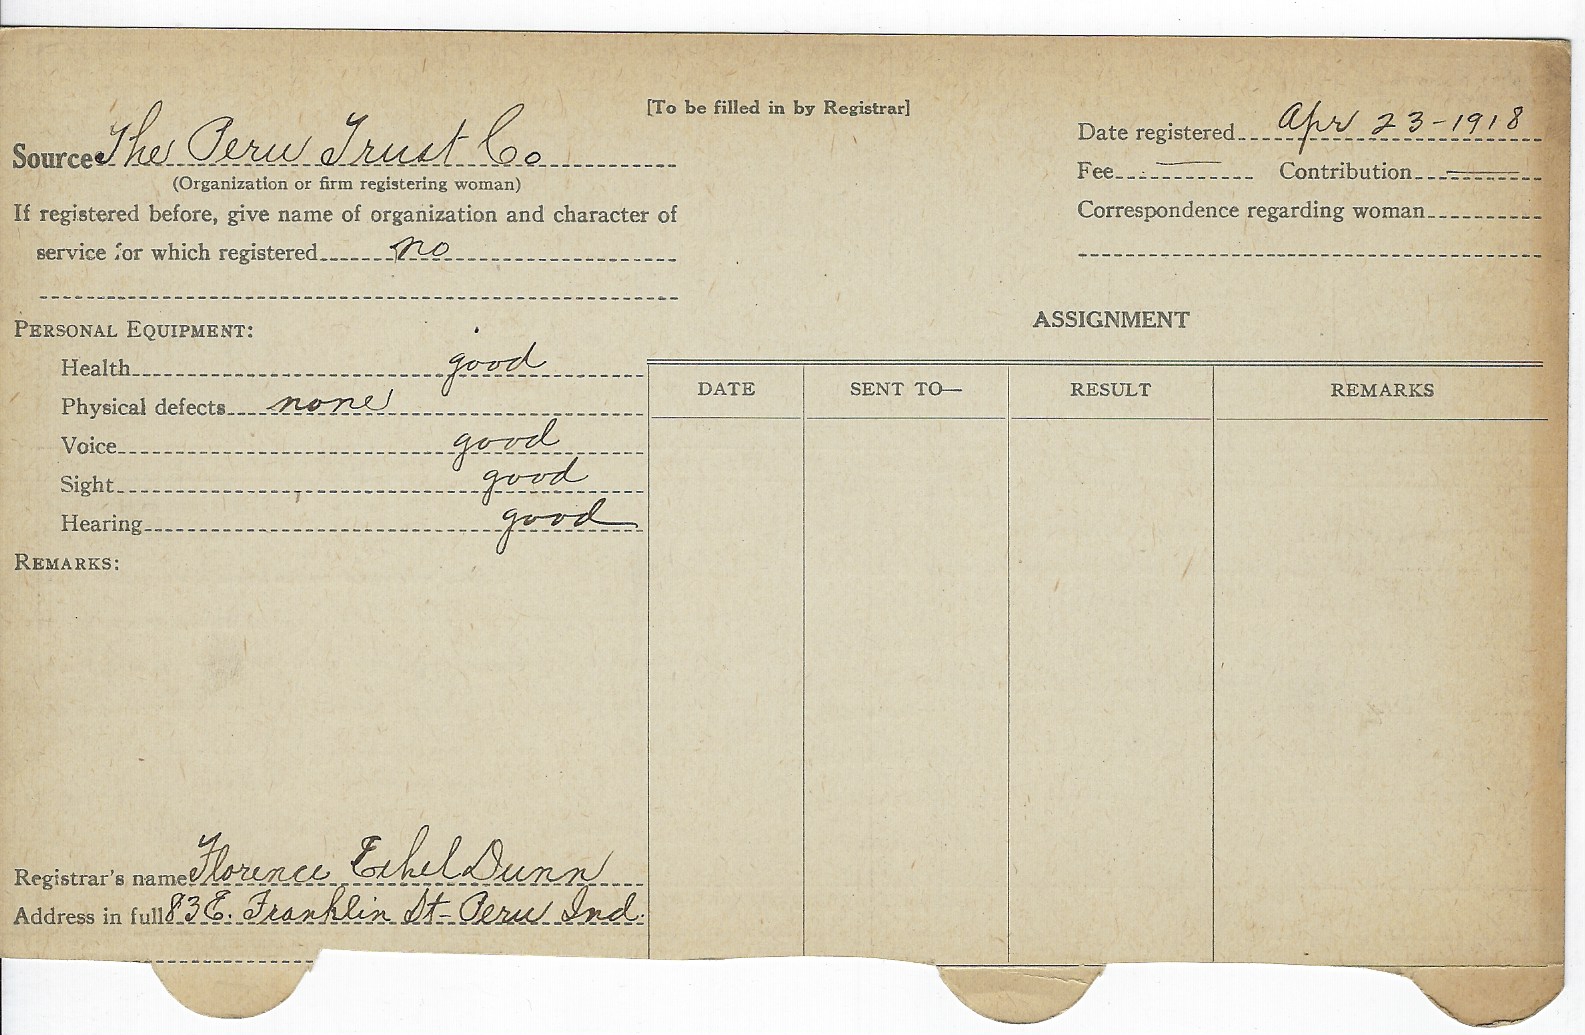 [To be filled in by Registrar]
Source The Peru Trust Co
(Organization or firm registering woman)
If registered before, give name of organization and character of
service for which registered no
Date registered Apr 23-1918
Fee — Contribution —
Correspondence regarding woman
PERSONAL EQUIPMENT:
Health good
Physical defects none
Voice good
Sight good
Hearing good
REMARKS:
Registrar's name Florence Ethel Dunn
Address in full 83 E. Franklin St - Peru Ind.
ASSIGNMENT
DATE SENT TO— RESULT REMARKS